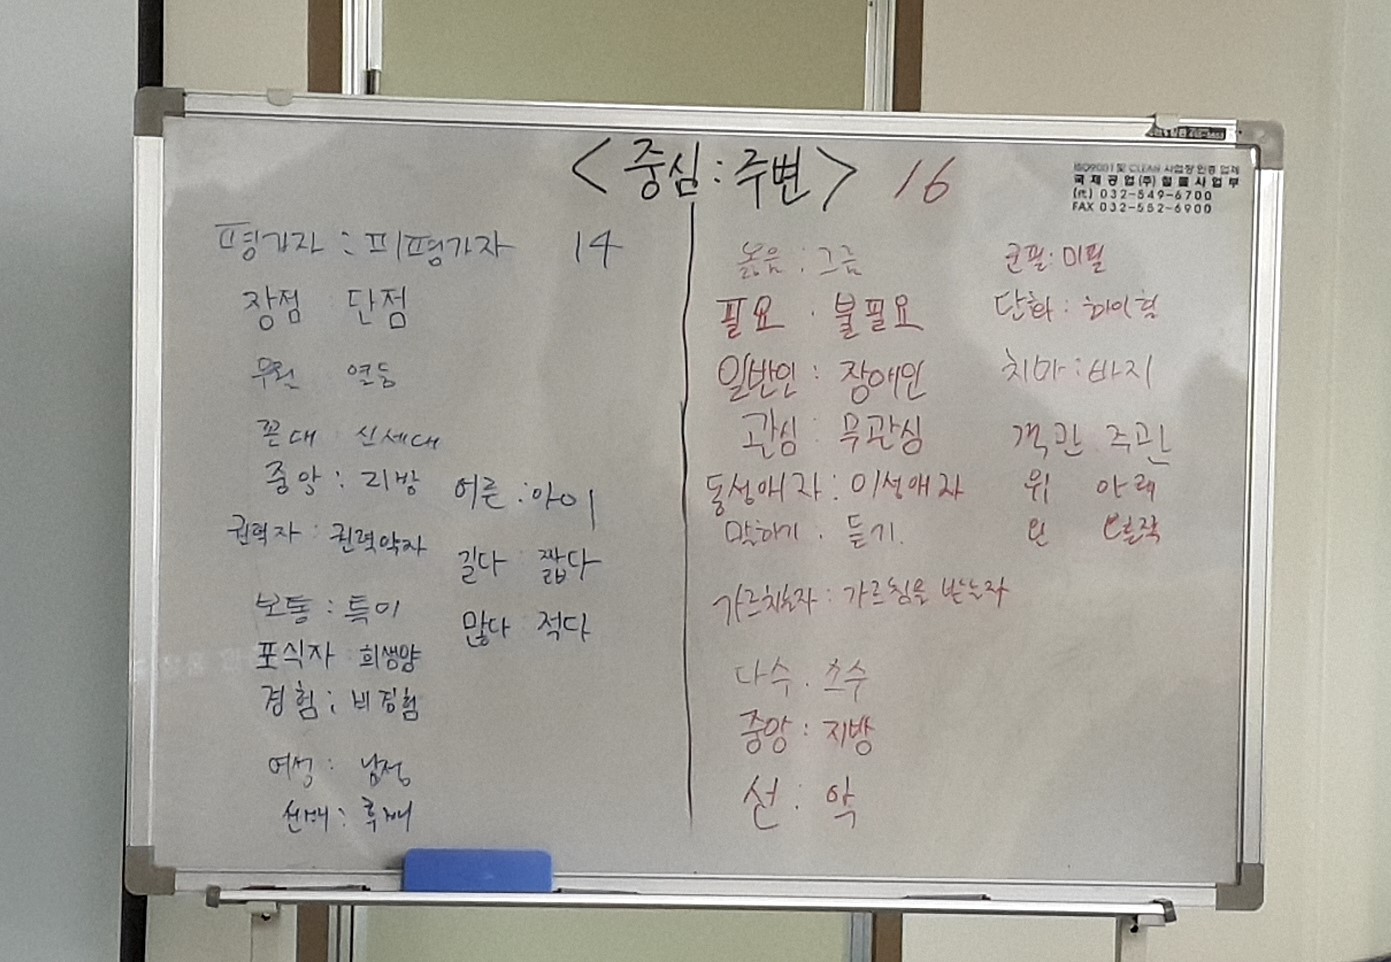 <중심:주변> 16
ISO9001 및 CLEAN 사업장 인증 업체
국제공업(주) 철물사업부
(代) 032-549-6700
FAX 032-552-6900
평가자 : 피평가자 14
장점 : 단점
우월 열등
꼰대 신세대
중앙 : 지방
어른 : 아이
권력자 : 권력약자
길다 : 짧다
보통 : 특이
많다 : 적다
포식자 : 희생양
경험 : 비경험
여성 : 남성
선배 : 후배
옳음 : 그름
필요 : 불필요
일반인 : 장애인
관심 : 무관심
동성애자 : 이성애자
말하기 : 듣기
가르치는자 : 가르침을 받는자
다수 : 소수
중앙 : 지방
선 : 악
군필 : 미필
단화 : 하이힐
치마 : 바지
객관 주관
위 아래